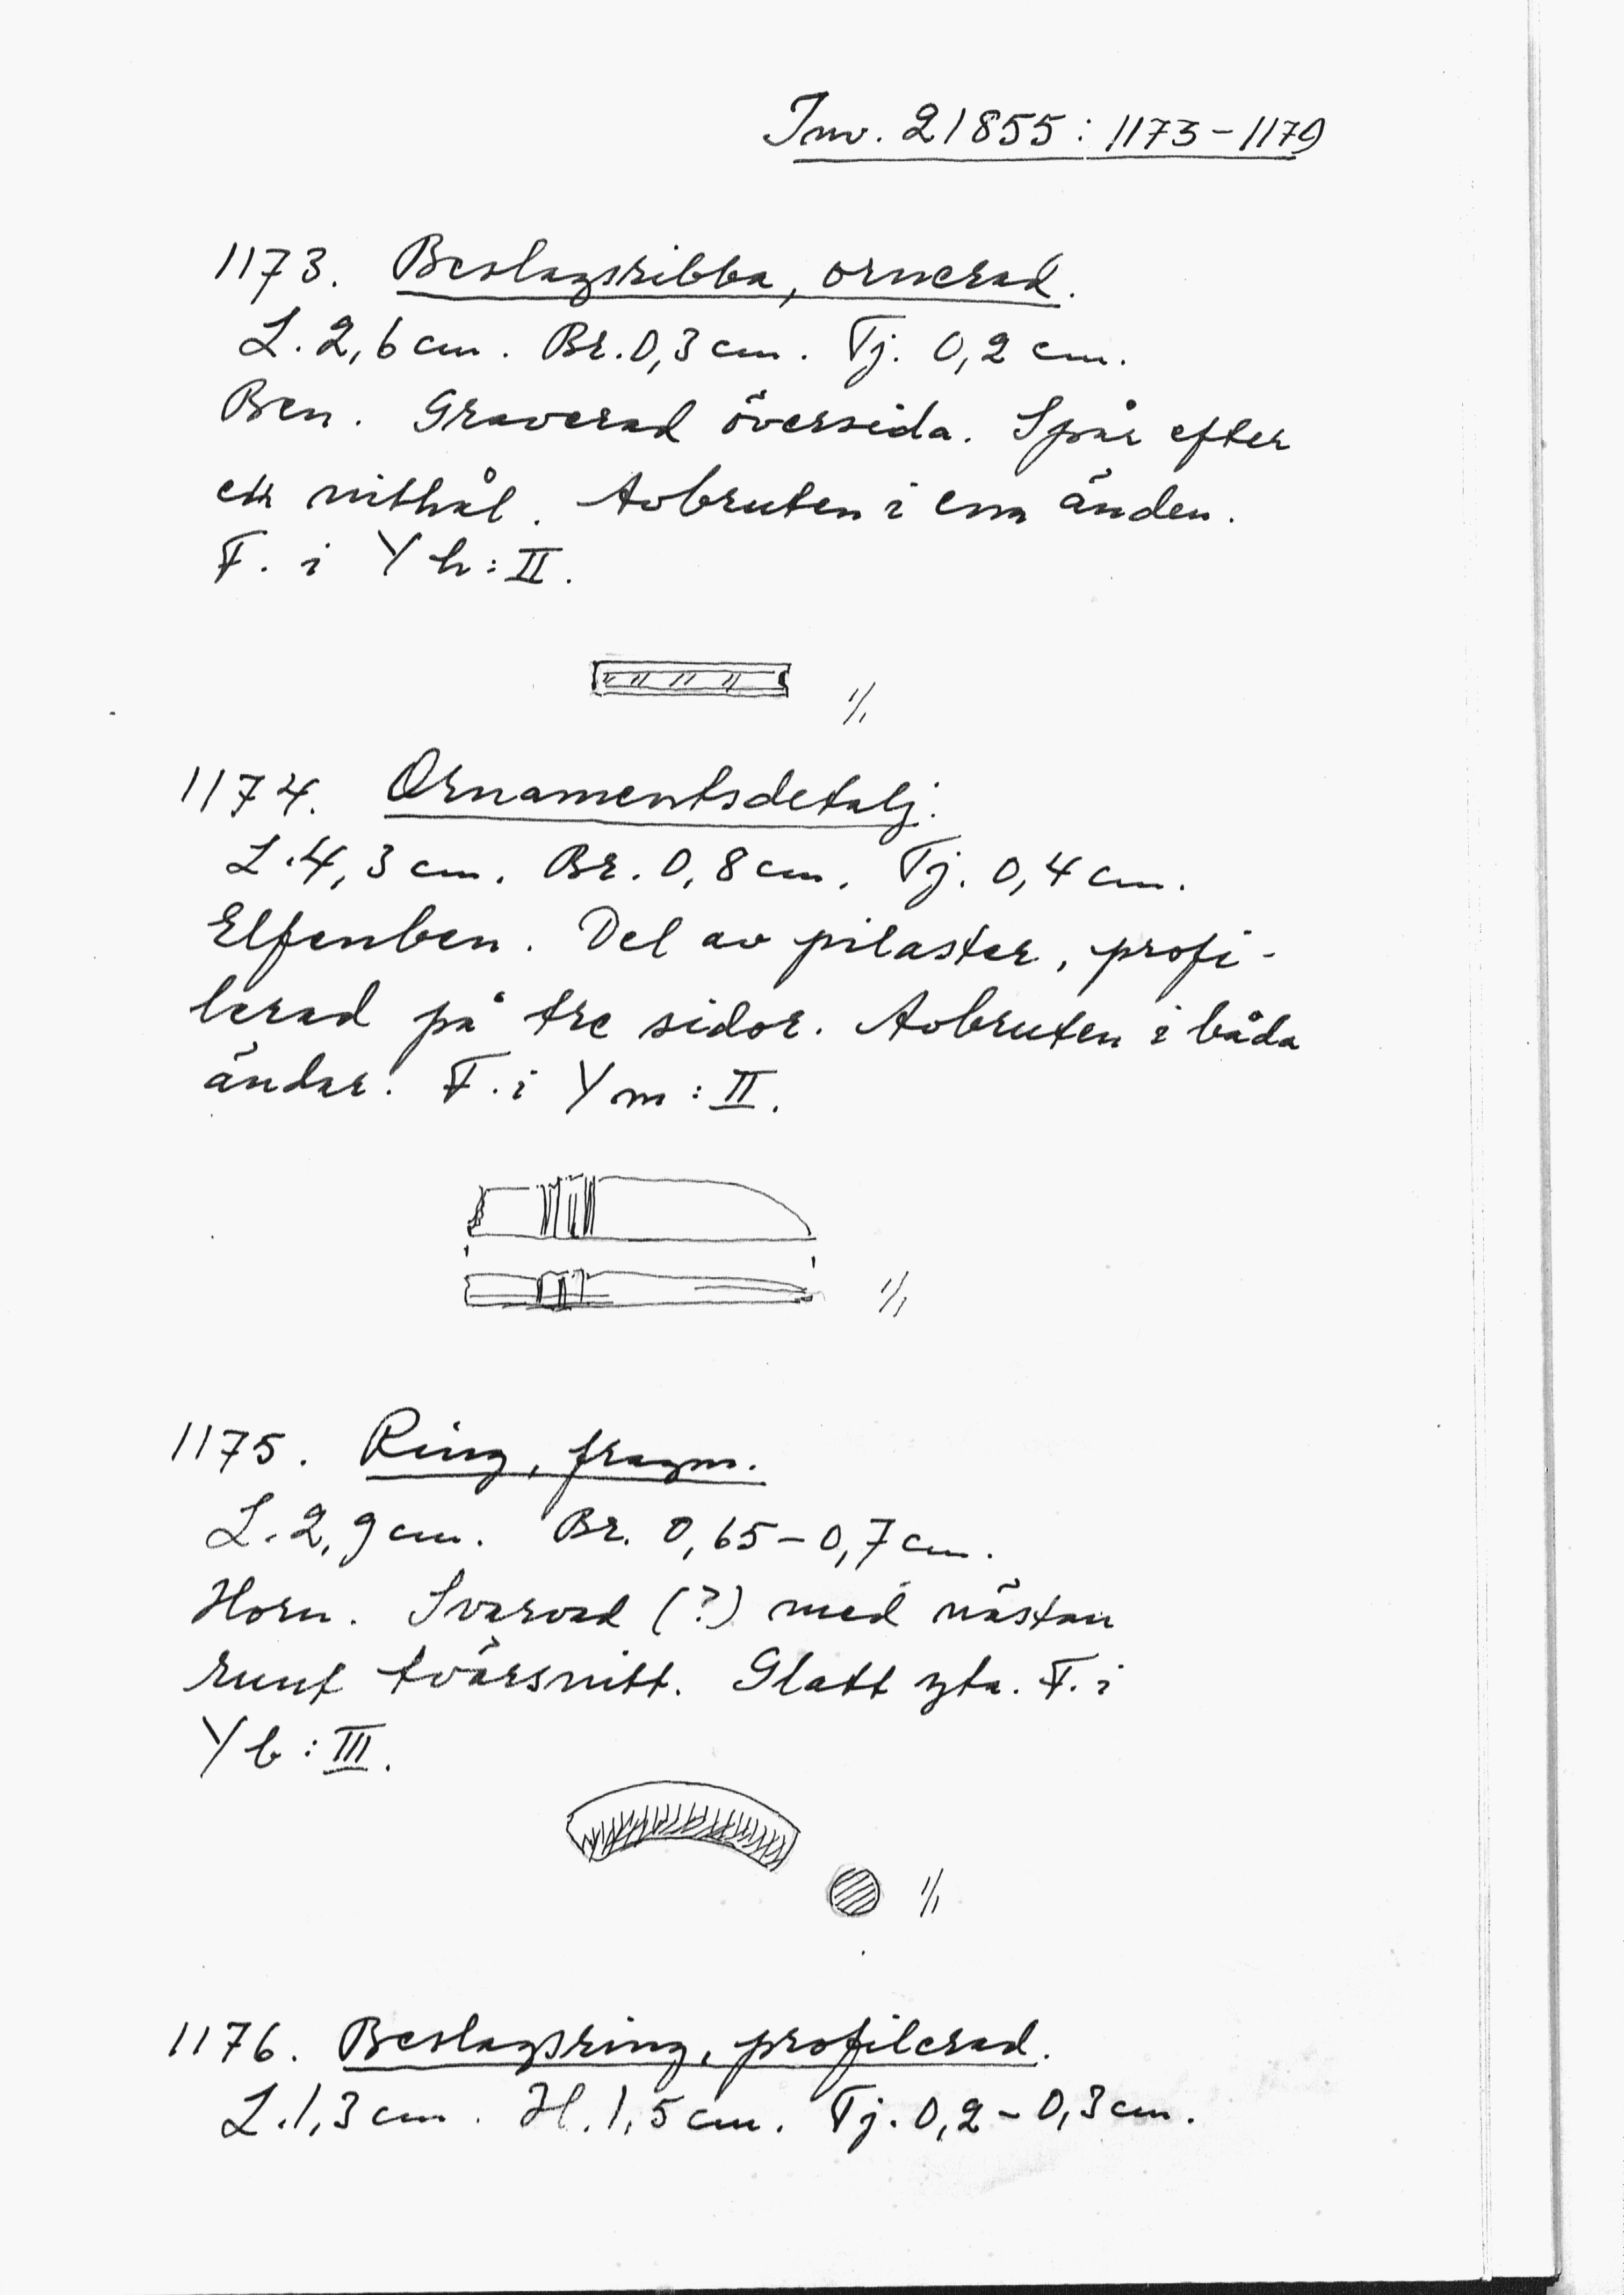 Inv. 21855: 1173-1179
1173. Beslagsribba, ornerad.
L. 2,6 cm. Br. 0,3 cm. Tj. 0,2 cm.
Ben. Graverad översida. Spår efter
ett nithål. Avbruten i ena änden.
F. i Yh:II.
1/1
1174. Ornamentsdetalj.
L. 4,3 cm. Br. 0,8 cm. Tj. 0,4 cm.
Elfenben. Del av pilaster, profi-
lerad på tre sidor. Avbruten i båda
ändar. F. i Ym:II.
1/1
1175. Ring, fragm.
L. 2,9 cm. Br. 0,65-0,7 cm.
Horn. Svarvad (?) med nästan
runt tvärsnitt. Glatt yta. F. i
Yb:III.
1/1
1176. Beslagsring, profilerad.
L. 1,3 cm. H. 1,5 cm. Tj. 0,2-0,3 cm.